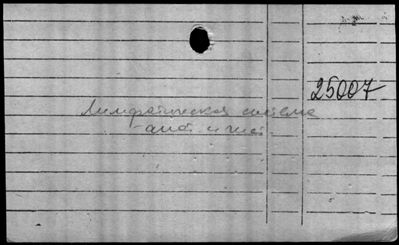 25007
Лимфатическая система
- анат. и гист.